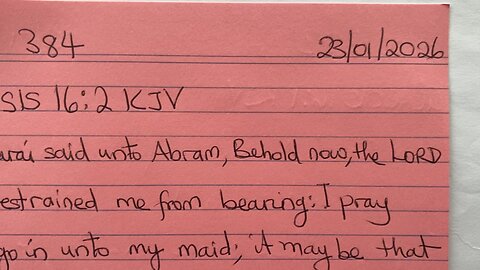 384 23/01/2026
SIS 16:2 KJV
arai said unto Abram, Behold now, the LORD
estrained me from bearing: I pray
go in unto my maid; it may be that